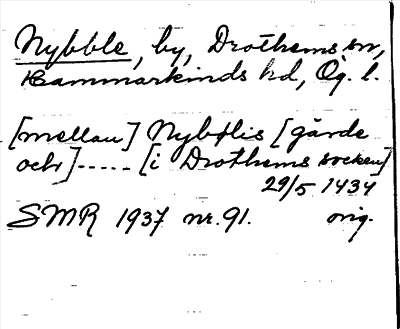 Nybble, by, Drothems sn,
Hammarkinds hd, Ög. l.
[mellan] Nybølis [gärde
och]-----[i Drothems socken]
29/5 1434
SMR 1937 nr. 91. orig.